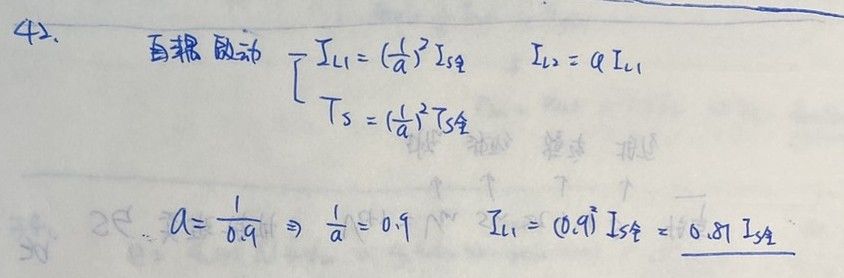 42.
自耦启动 I_{L1} = (1/a)² I_{S全} I_{L2} = a I_{L1}
T_S = (1/a)² T_{S全}
a = 1/0.9 ⇒ 1/a = 0.9 I_{L1} = (0.9)² I_{S全} = 0.81 I_{S全}